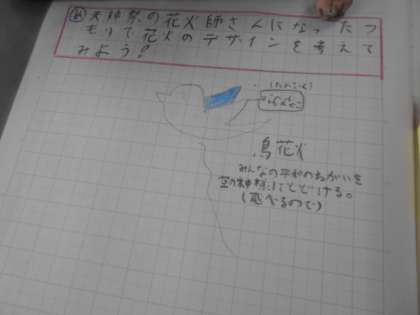 天神祭の花火師さんになったつ
もりで花火のデザインを考えて
みよう！
鳥花火
みんなの平和のねがいを
天神様にとどける。
(飛べるので)